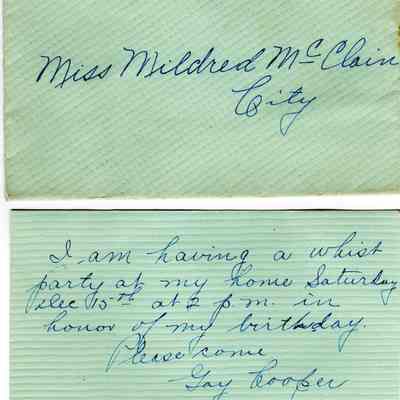 Miss Mildred McClain
City
I am having a whist
party at my home Saturday
Dec 15th at 2 p.m. in
honor of my birthday.
Please come
Gay Cooper